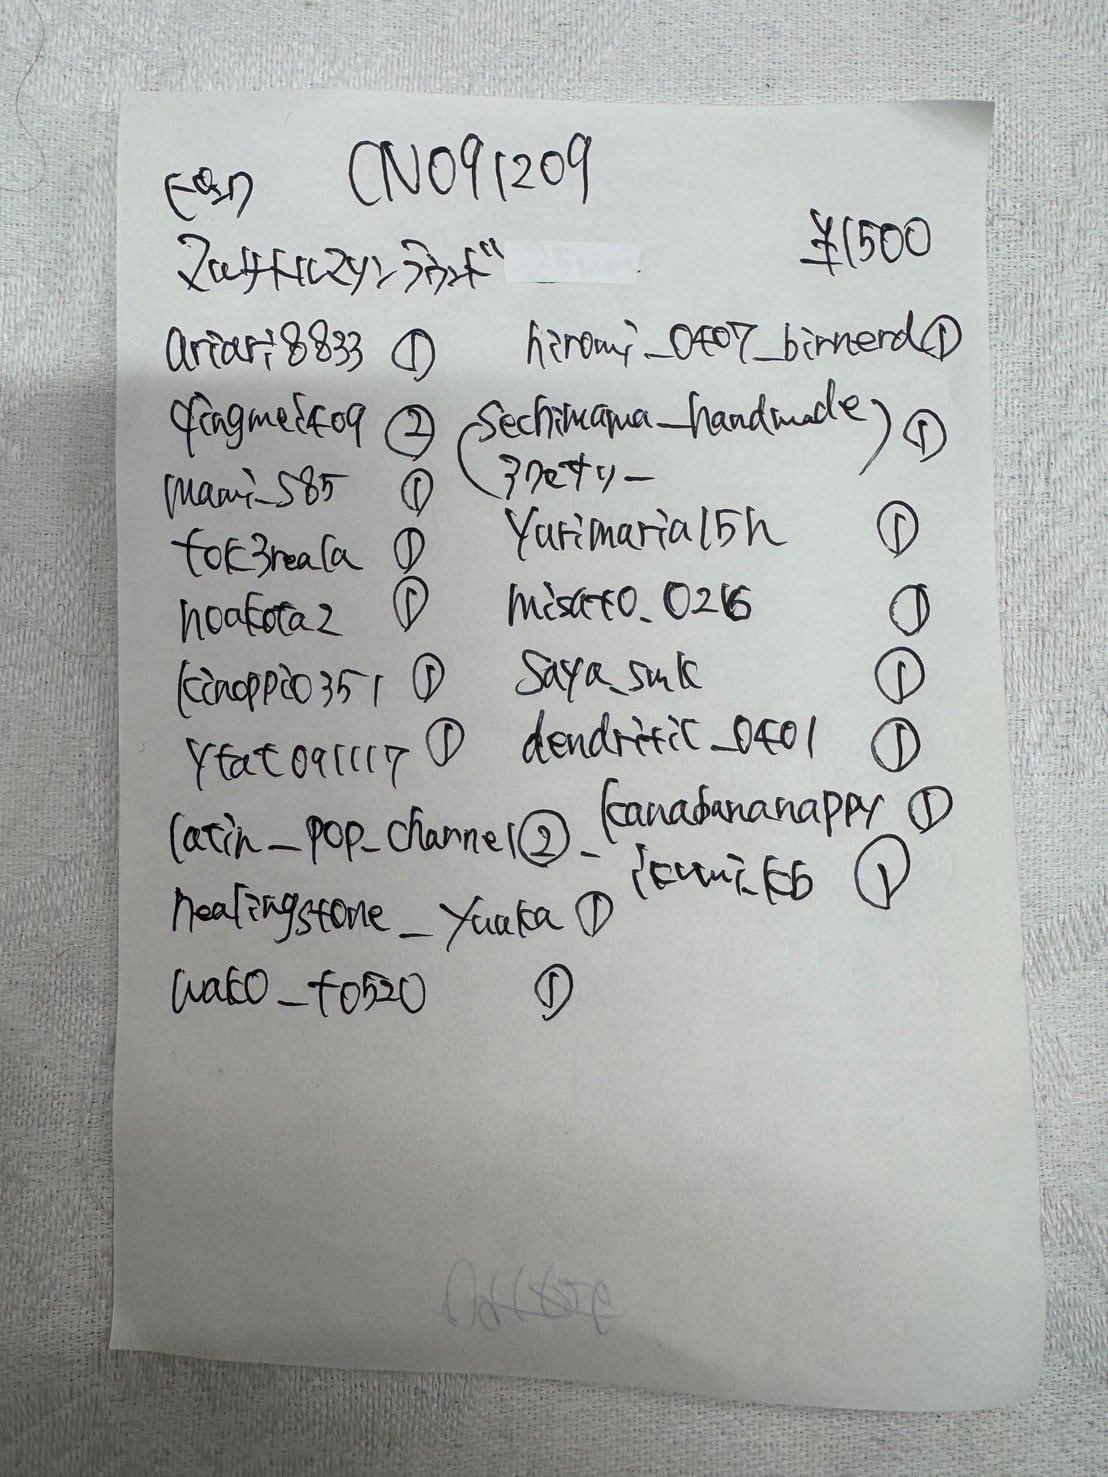 CN091209
¥1500
ariari8833 ①
qingmei409 ②
mami_585 ①
tok3reala ①
noakota2 ①
kinoppio351 ①
ytat091117 ①
latin_pop_channel ②
healingstone_yuuka ①
wako_t0520 ①
hiromi_0407_birnerd ①
(sechimama_handmade) ①
yurimaria15h ①
misato_0216 ①
saya_smk ①
dendritic_0401 ①
_kanabananappy ①
ikumi_kb ①